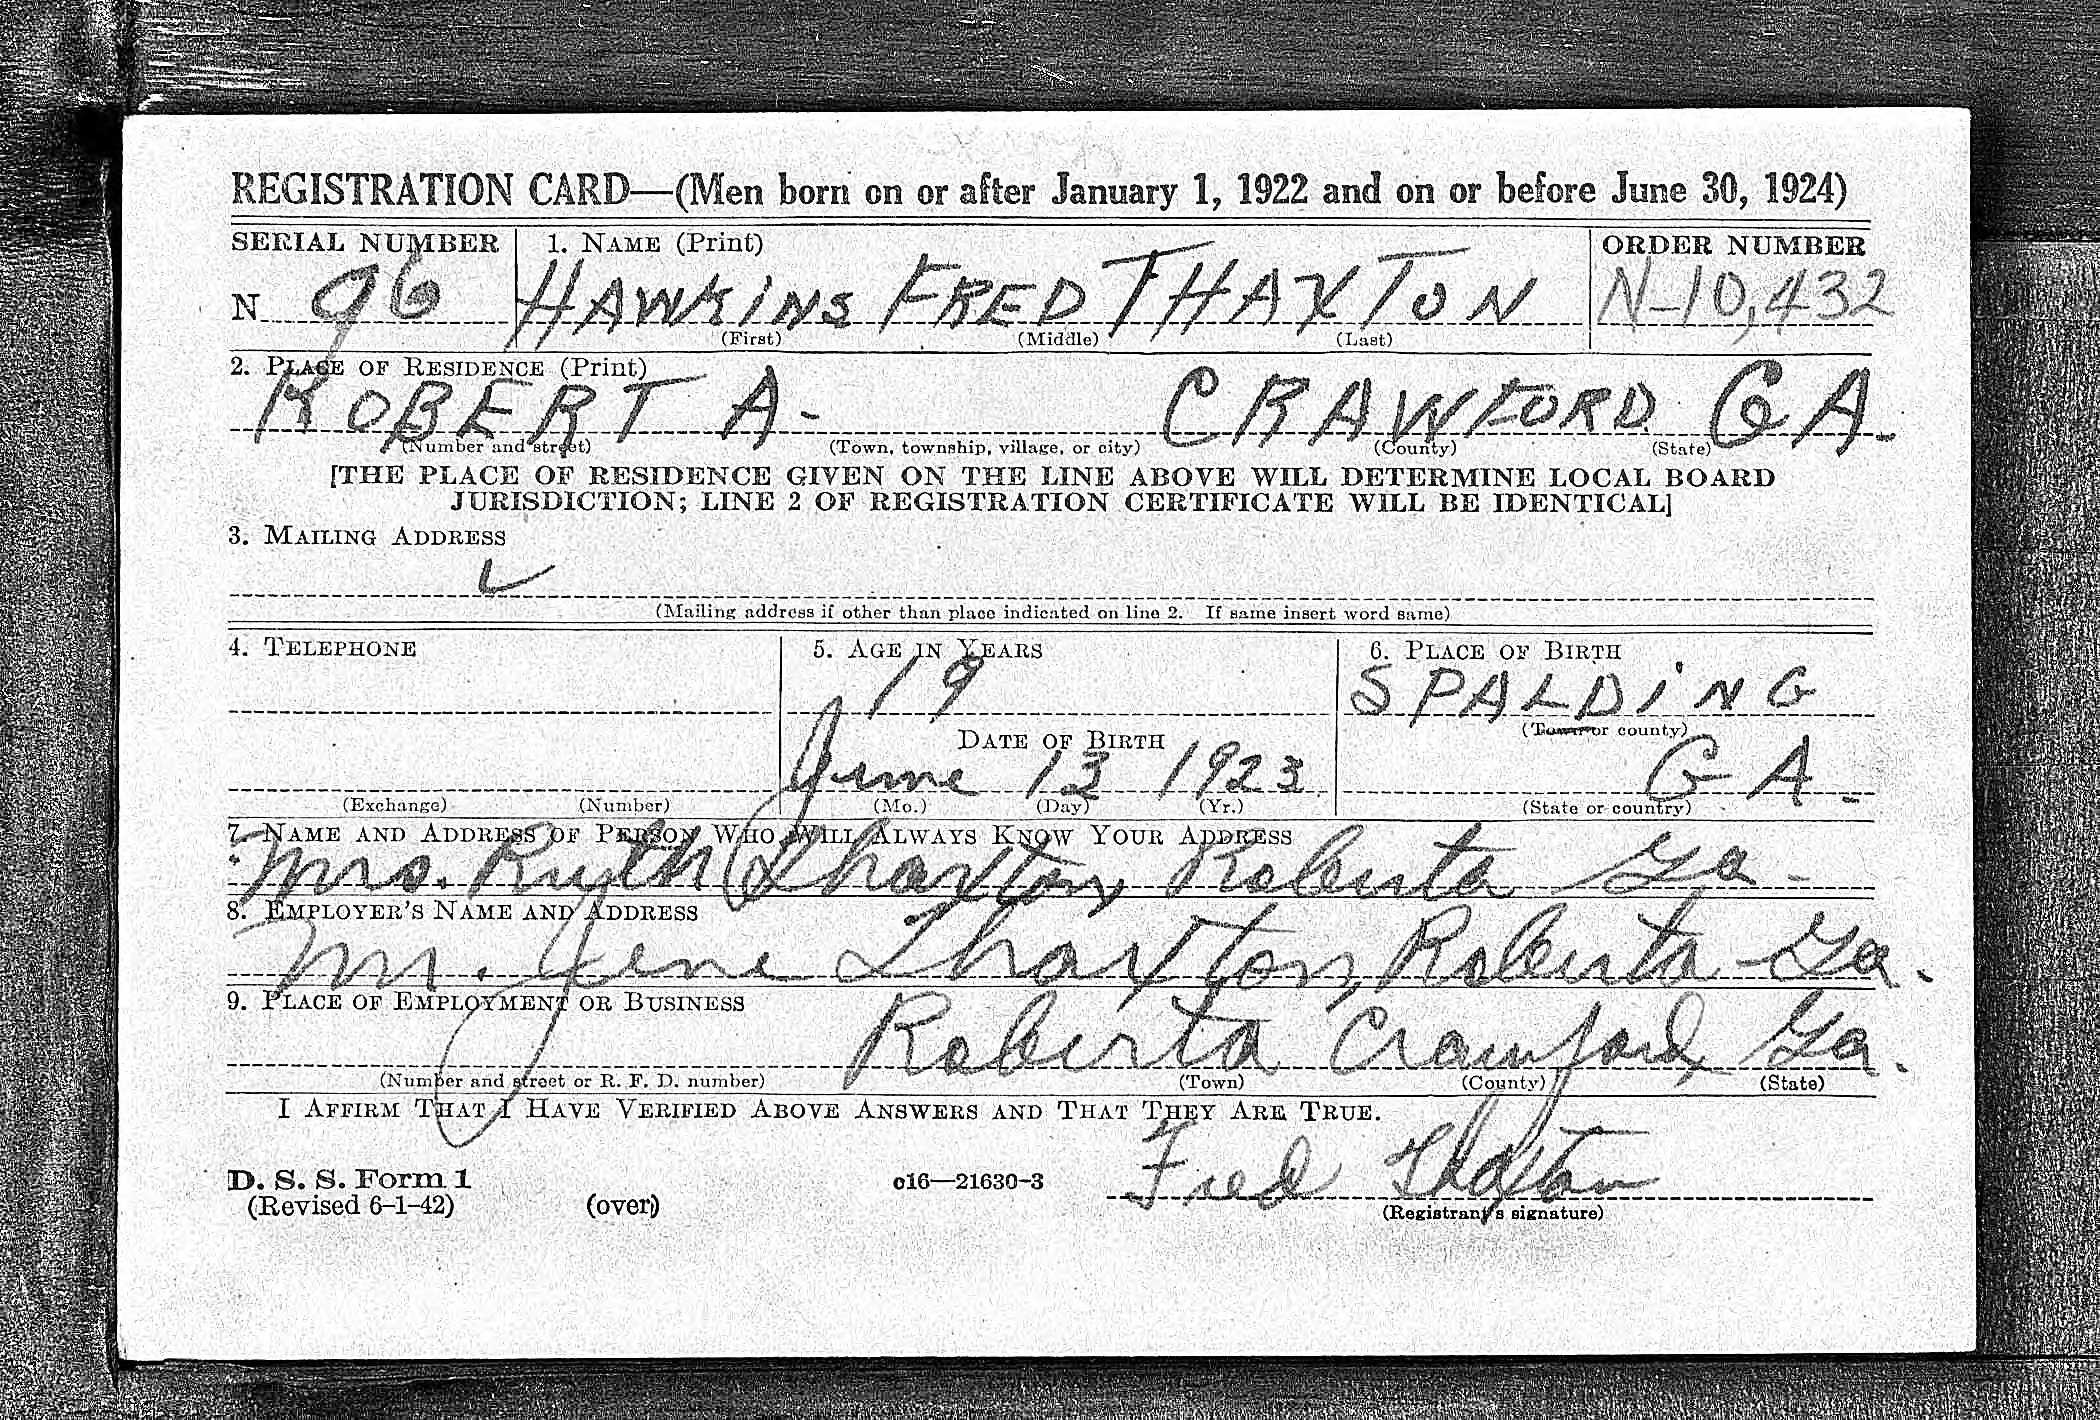 REGISTRATION CARD—(Men born on or after January 1, 1922 and on or before June 30, 1924)
SERIAL NUMBER 1. NAME (Print) ORDER NUMBER
N 96 HAWKINS FRED THAXTON N-10,432
(First) (Middle) (Last)
2. PLACE OF RESIDENCE (Print)
ROBERTA- CRAWFORD GA.
(Number and street) (Town, township, village, or city) (County) (State)
[THE PLACE OF RESIDENCE GIVEN ON THE LINE ABOVE WILL DETERMINE LOCAL BOARD
JURISDICTION; LINE 2 OF REGISTRATION CERTIFICATE WILL BE IDENTICAL]
3. MAILING ADDRESS
(Mailing address if other than place indicated on line 2. If same insert word same)
4. TELEPHONE 5. AGE IN YEARS 6. PLACE OF BIRTH
19 SPALDING
(Town or county)
DATE OF BIRTH
June 13 1923 GA.
(Exchange) (Number) (Mo.) (Day) (Yr.) (State or country)
7. NAME AND ADDRESS OF PERSON WHO WILL ALWAYS KNOW YOUR ADDRESS
Mrs. Ruth Thaxton, Roberta Ga-
8. EMPLOYER'S NAME AND ADDRESS
Mr. Jene Thaxton, Roberta-Ga.
9. PLACE OF EMPLOYMENT OR BUSINESS
Roberta Crawford, Ga.
(Number and street or R. F. D. number) (Town) (County) (State)
I AFFIRM THAT I HAVE VERIFIED ABOVE ANSWERS AND THAT THEY ARE TRUE.
Fred Thaxton
D. S. S. Form 1 c16—21630-3
(Revised 6-1-42) (over) (Registrant's signature)